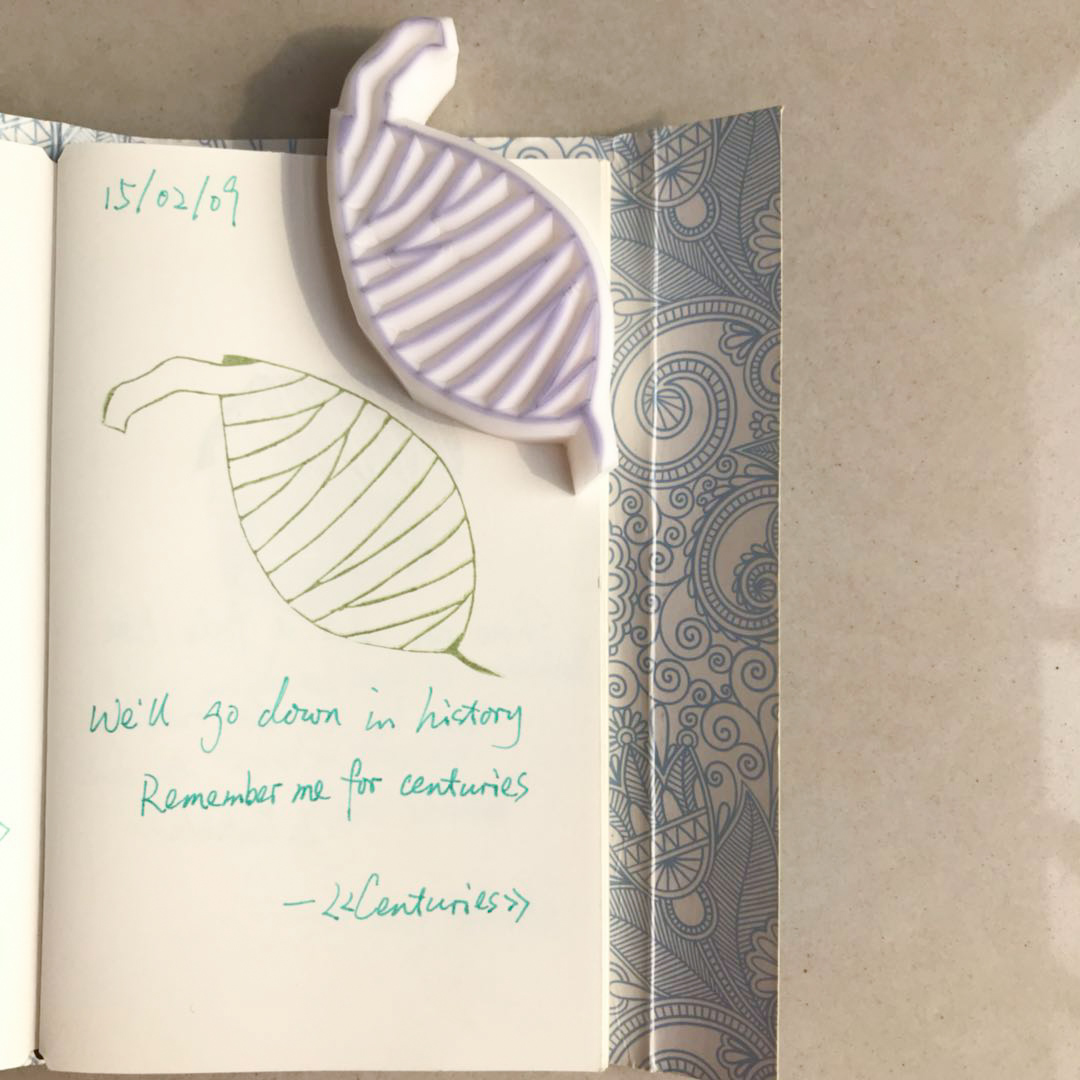 15/02/09
We'll go down in history
Remember me for centuries
—《Centuries》